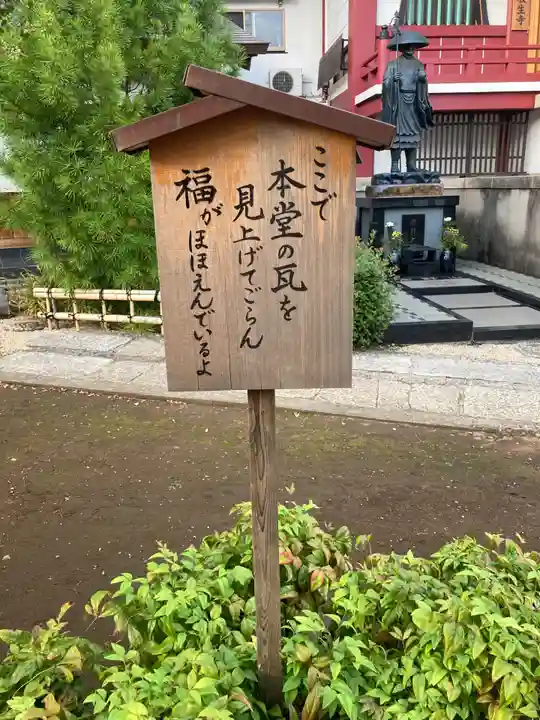 ここで
本堂の瓦を
見上げてごらん
福がほほえんでいるよ